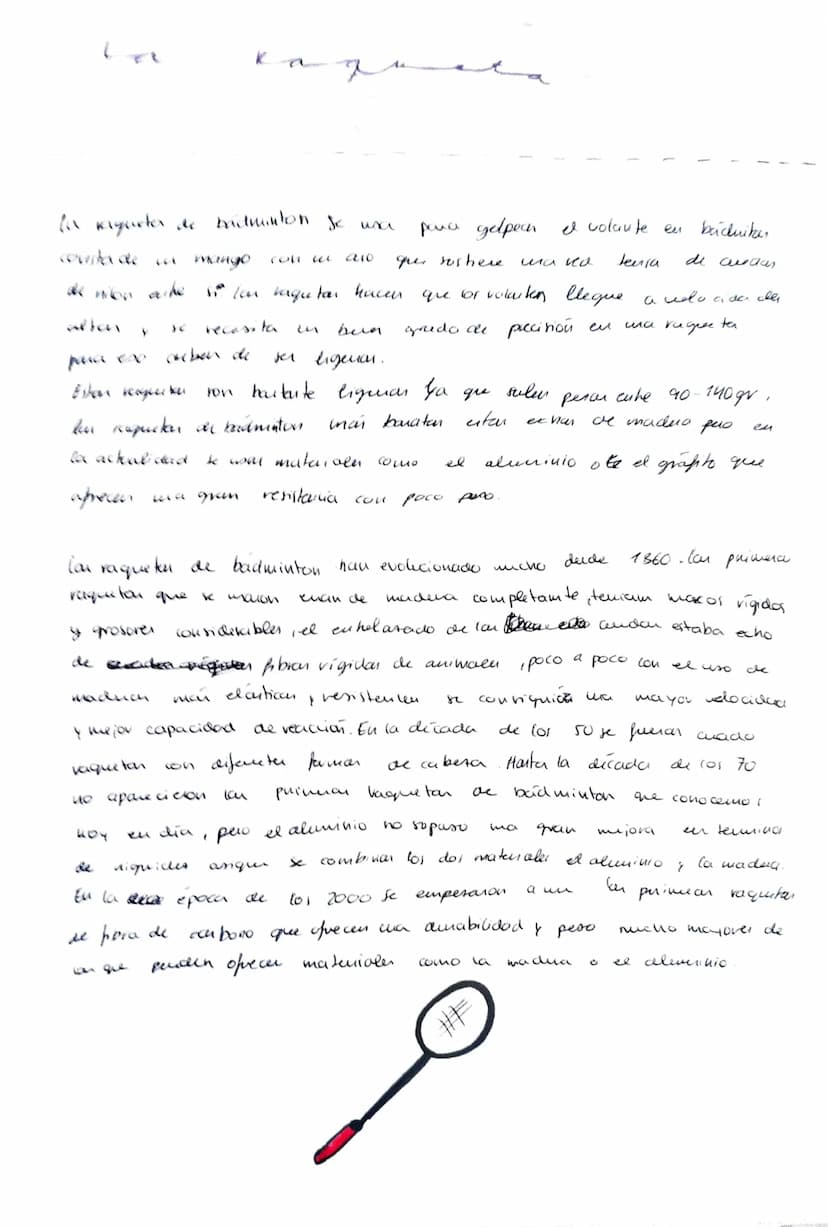 La raqueta
La raqueta de bádminton se usa para golpear el volante en bádminton
consta de un mango con un aro que sostiene una red tensa de cuerdas
de nilon Las raquetas hacen que los volantes llegue a velocidades
altas y se necesita un buen grado de precisión en una raqueta
para deben de ser ligeras.
Estas raquetas son bastante ligeras ya que suelen pesar entre 90-140gr,
las raquetas de bádminton más baratas estan echas de madera pero en
la actualidad se usan materiales como el aluminio o el gráfito que
ofrecen una gran resistencia con poco peso.
Las raquetas de bádminton han evolucionado mucho desde 1860. las primera
raquetas que se usaron eran de madera completamte, tenian marcos rígidos
y grosores considerables, el entrelazado de las cuerdas estaba echo
de fibras rígidas de animales, poco a poco con el uso de
maderas más elásticas y resistentes se consiguió una mayor velocidad
y mejor capacidad de reacción. En la década de los 50 se fueron creando
raquetas con diferentes formas de cabesa. Hasta la década de los 70
no aparecieron las primeras raquetas de bádminton que conocemos
hoy en día, pero el aluminio no supuso una gran mejora en terminos
de riguides aunque se combinar los dos materiales el aluminio y la madera.
En la época de los 2000 se empesaron a las primeras raquetas
de fibra de carbono que ofrecen una durabilidad y peso mucho mayores de
las que pueden ofrecer materiales como la madera o el aluminio.